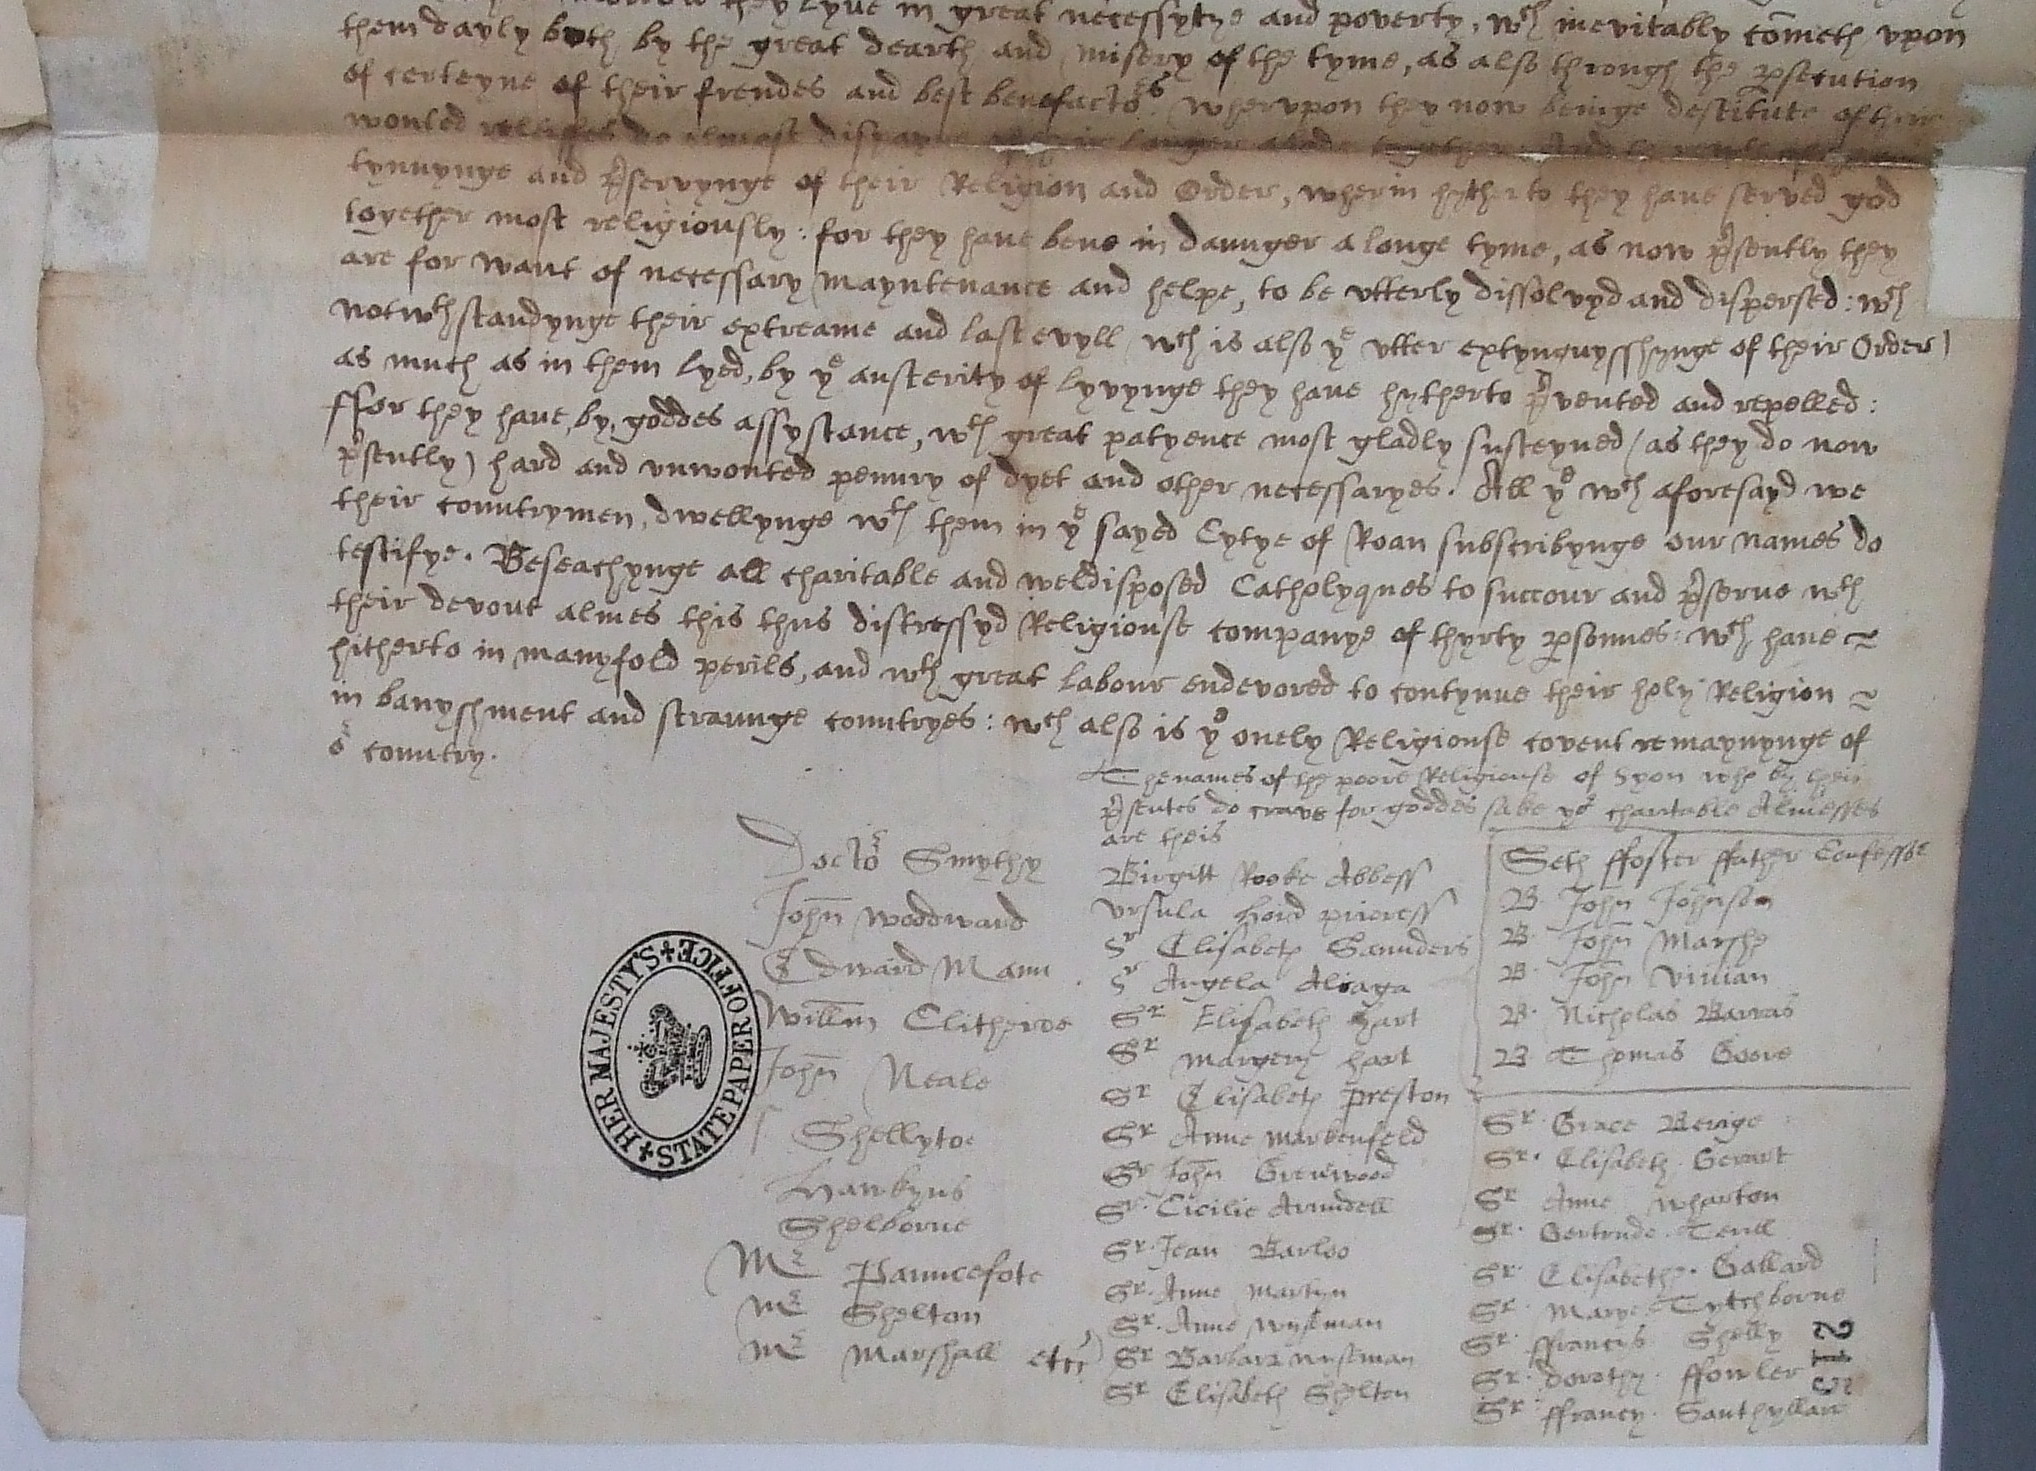 they lyve in great necessytye and poverty, wch inevitably cōmeth vpon
them dayly both by the great dearth and misery of the tyme, as also throughe the ꝑsecution
of certeyne of their frendes and best benefactors. Wherupon they now beinge destitute of their
wonted do almost dispayre longer abode together. And
tynuynge and pservynge of their Religion and Order, wherin hytherto they have served god
together most religiously: for they have bene in daunger a longe tyme, as now psently they
are for want of necessary mayntenance and helpe, to be vtterly dissolvyd and dispersed: wch
notwthstandynge their extreame and last evyll (wch is also ye vtter extynguysshynge of their Order)
as much as in them lyed, by ye austerity of lyvynge they have hytherto pvented and repelled:
ffor they have, by goddes assystance, wth great patyence most gladly susteyned (as they do now
psently) hard and vnwonted penury of dyet and other necessaryes. All ye wch aforesayd we
their countrymen, dwellynge wth them in ye sayed Cytye of Roan subscribynge our names do
testifye. Beseachynge all charitable and weldisposed Catholyques to succour and pserve wth
their devout almes this thus distressyd Religiouse companye of thyrty ꝑsonnes: wch have ~
hitherto in manyfold perils, and wth great labour endevored to contynue their holy Religion ~
in banyshment and straunge countryes: wch also is ye onely Religiouse covent remaynynge of
or country.
The names of the poore Religiouse of Syon who by theis
psentes do crave for goddes sake yor charitable Almesses
are theis
Doctor Smythy
John Woodward
Edward Mann
Willm Clitheroe
John Neale
Shellytoe
Hawkyns
Shelborne
Mr Pauncefote
Mr Shelton
Mr Marshall etc
Birgitt Rooke Abbess
Vrsula Hord prioress
Sr Elisabeth Saunders
Sr Angela Aliaga
Sr Elisabeth Hart
Sr Margery hart
Sr Elisabeth Preston
Sr Anne Markenfeld
Sr John Grenwood
Sr Cicilie Arundell
Sr Jean Barloo
Sr Anne Martyn
Sr Anne Wyseman
Sr Barbara wyseman
Sr Elisabeth Shelton
Seth ffoster ffather Confessor
B. John Johnson
B. John Marshe
B. John Vivian
B. Nicholas Barras
B Thomas Goore
Sr Grace Berige
Sr Elisabeth Gerart
Sr Anne Wharton
Sr Gertrude
Sr Elisabethe Gallard
Sr Marye Tytchborne
Sr ffrancis Shelly
Sr dorothy ffowler
Sr ffrancy Santhyllare
HER MAJESTY'S STATE PAPER OFFICE
213